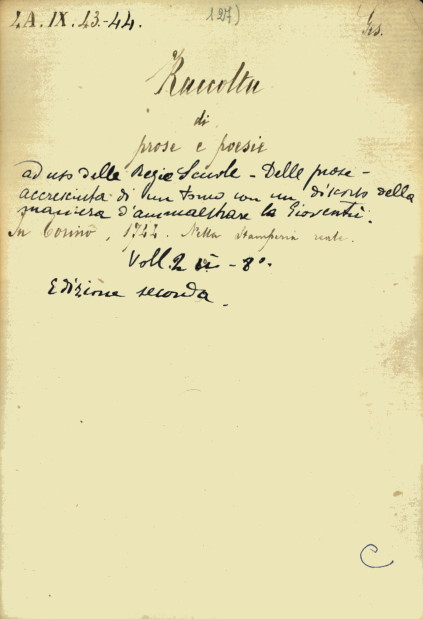 2A. IX. 43-44. 127)
Raccolta
di
prose e poesie
ad uso delle Regie Scuole - Delle prose -
accresciuta di un tomo con un discorso della
maniera d'ammaestrare la Gioventù.
In Torino, 1744. Nella Stamperia reale.
Voll. 2 - 8°.
Edizione seconda.
C